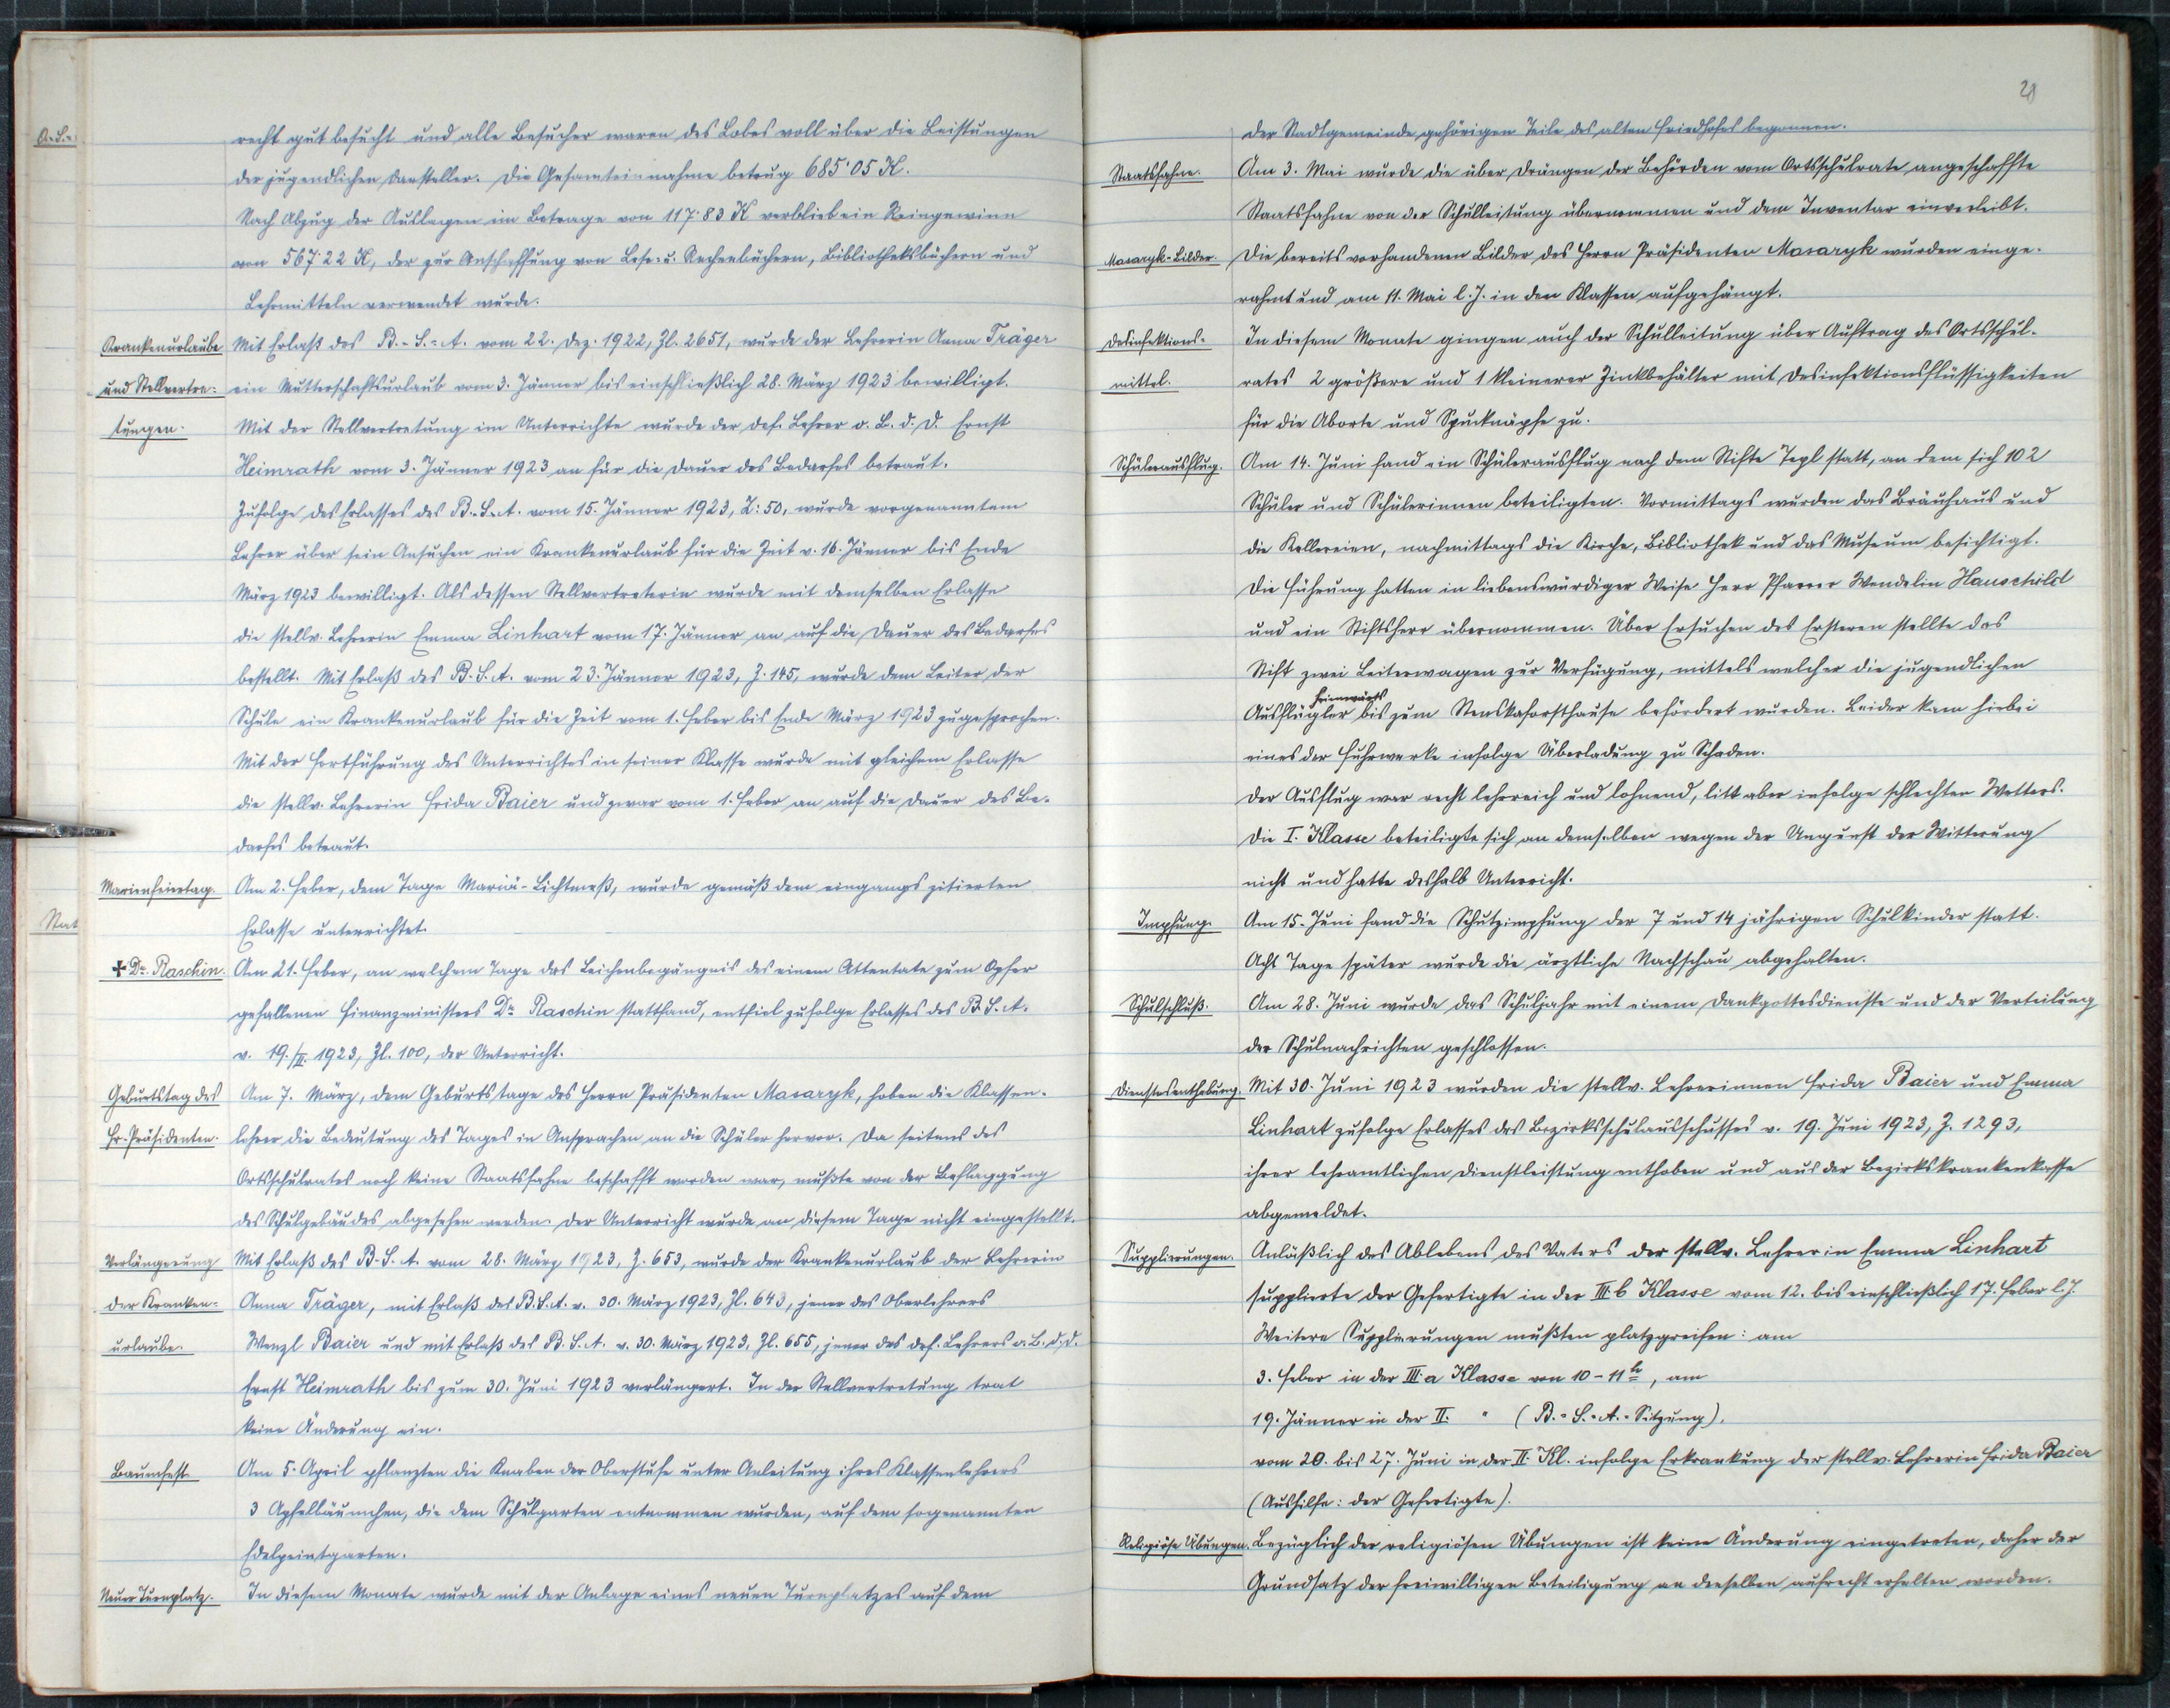 recht gut besucht und alle Besucher waren des Lobes voll über die Leistungen
der jugendlichen Darsteller. Die Gesamteinnahme betrug 685·05 K.
Nach Abzug der Auslagen im Betrage von 117·83 K verblieb ein Reingewinn
von 567·22 K, der zur Anschaffung von Lese- u. Rechenbüchern, Bibliotheksbüchern und
Lehrmitteln verwendet wurde.
Krankenurlaube Mit Erlaß des B.-S.-A. vom 22. Dez. 1922, Zl. 2651, wurde der Lehrerin Anna Träger
und Stellvertre- ein Mutterschaftsurlaub vom 3. Jänner bis einschließlich 28. März 1923 bewilligt.
tungen. Mit der Stellvertretung im Unterrichte wurde der def. Lehrer o. B. d. D. Ernst
Heimrath vom 3. Jänner 1923 an für die Dauer des Bedarfes betraut.
Zufolge des Erlasses des B.-S.-A. vom 15. Jänner 1923, Z: 50, wurde vorgenanntem
Lehrer über sein Ansuchen ein Krankenurlaub für die Zeit v. 16. Jänner bis Ende
März 1923 bewilligt. Als dessen Stellvertreterin wurde mit demselben Erlasse
die stellv. Lehrerin Emma Linhart vom 17. Jänner an auf die Dauer des Bedarfes
bestellt. Mit Erlaß des B.S.A. vom 23. Jänner 1923, Z. 145, wurde dem Leiter der
Schule ein Krankenurlaub für die Zeit vom 1. Feber bis Ende März 1923 zugesprochen.
Mit der Fortführung des Unterrichtes in seiner Klasse wurde mit gleichem Erlasse
die stellv. Lehrerin Frida Baier und zwar vom 1. Feber an auf die Dauer des Be-
darfes betraut.
Marienfeiertag. Am 2. Feber, dem Tage Mariä-Lichtmeß, wurde gemäß dem eingangs zitierten
Erlasse unterrichtet.
✝ Dr. Raschin. Am 21. Feber, an welchem Tage das Leichenbegängnis des einem Attentate zum Opfer
gefallenen Finanzministers Dr. Raschin stattfand, entfiel zufolge Erlasses des B.S.A.
v. 19./II. 1923, Zl. 100, der Unterricht.
Geburtstag des Am 7. März, dem Geburtstage des Herrn Präsidenten Masaryk, hoben die Klassen-
Hr. Präsidenten. lehrer die Bedeutung des Tages in Ansprachen an die Schüler hervor. Da seitens des
Ortsschulrates noch keine Staatsfahne beschafft worden war, mußte von der Beflaggung
des Schulgebäudes abgesehen werden. Der Unterricht wurde an diesem Tage nicht eingestellt.
Verlängerung Mit Erlaß des B.S.A. vom 28. März 1923, Z. 653, wurde der Krankenurlaub der Lehrerin
der Kranken- Anna Träger, mit Erlaß des B.S.A. v. 30. März 1923, Zl. 643, jener des Oberlehrers
urlaube. Wenzl Baier und mit Erlaß des B.S.A. v. 30. März 1923, Zl. 655, jener des def. Lehrers o. B. d. D.
Ernst Heimrath bis zum 30. Juni 1923 verlängert. In der Stellvertretung trat
keine Änderung ein.
Baumfest Am 5. April pflanzten die Knaben der Oberstufe unter Anleitung ihres Klassenlehrers
3 Apfelbäumchen, die dem Schulgarten entnommen wurden, auf dem sogenannten
Edelpeintgarten.
Neuer Turnplatz. In diesem Monate wurde mit der Anlage eines neuen Turnplatzes auf dem
der Stadtgemeinde gehörigen Teile des alten Friedhofes begonnen.
Staatsfahne. Am 3. Mai wurde die über Drängen der Behörden vom Ortsschulrate angeschaffte
Staatsfahne von der Schulleitung übernommen und dem Inventar einverleibt.
Masaryk-Bilder. Die bereits vorhandenen Bilder des Herrn Präsidenten Masaryk wurden einge-
rahmt und am 11. Mai l. J. in den Klassen aufgehängt.
Desinfektions- In diesem Monate gingen auch der Schulleitung über Auftrag des Ortsschul-
mittel. rates 2 größere und 1 kleinerer Zinkbehälter mit Desinfektionsflüssigkeiten
für die Aborte und Spucknäpfe zu.
Schülerausflug. Am 14. Juni fand ein Schülerausflug nach dem Stifte Tepl statt, an dem sich 102
Schüler und Schülerinnen beteiligten. Vormittags wurden das Bräuhaus und
die Kellereien, nachmittags die Kirche, Bibliothek und das Museum besichtigt.
Die Führung hatten in liebenswürdiger Weise Herr Pfarrer Wendelin Hauschild
und ein Stiftsherr übernommen. Über Ersuchen des Ersteren stellte das
Stift zwei Leiterwagen zur Verfügung, mittels welcher die jugendlichen
heimwärts
Ausflügler bis zum befördert wurden. Leider kam hiebei
eines der Fuhrwerke infolge Überladung zu Schaden.
Der Ausflug war recht lehrreich und lohnend, litt aber infolge schlechten Wetters.
Die I. Klasse beteiligte sich an demselben wegen der Ungunst der Witterung
nicht und hatte deshalb Unterricht.
Impfung. Am 15. Juni fand die Schutzimpfung der 7 und 14 jährigen Schulkinder statt.
Acht Tage später wurde die ärztliche Nachschau abgehalten.
Schulschluß. Am 28. Juni wurde das Schuljahr mit einem Dankgottesdienste und der Verteilung
der Schulnachrichten geschlossen.
Dienstesenthebung. Mit 30. Juni 1923 wurden die stellv. Lehrerinnen Frida Baier und Emma
Linhart zufolge Erlasses des Bezirksschulausschusses v. 19. Juni 1923, Z. 1293,
ihrer lehramtlichen Dienstleistung enthoben und aus der Bezirkskrankenkasse
abgemeldet.
Supplierungen. Anläßlich des Ablebens des Vaters der stellv. Lehrerin Emma Linhart
supplierte der Gefertigte in der III b Klasse vom 12. bis einschließlich 17. Feber l. J.
Weitere Supplierungen mußten platzgreifen: am
3. Feber in der III a Klasse von 10-11 h, am
19. Jänner in der II. " (B.-S.-A.-Sitzung),
vom 20. bis 27. Juni in der II. Kl. infolge Erkrankung der stellv. Lehrerin Frida Baier
(Aushilfe: der Gefertigte).
Religiöse Übungen. Bezüglich der religiösen Übungen ist keine Änderung eingetreten, daher der
Grundsatz der freiwilligen Beteiligung an denselben aufrecht erhalten worden.